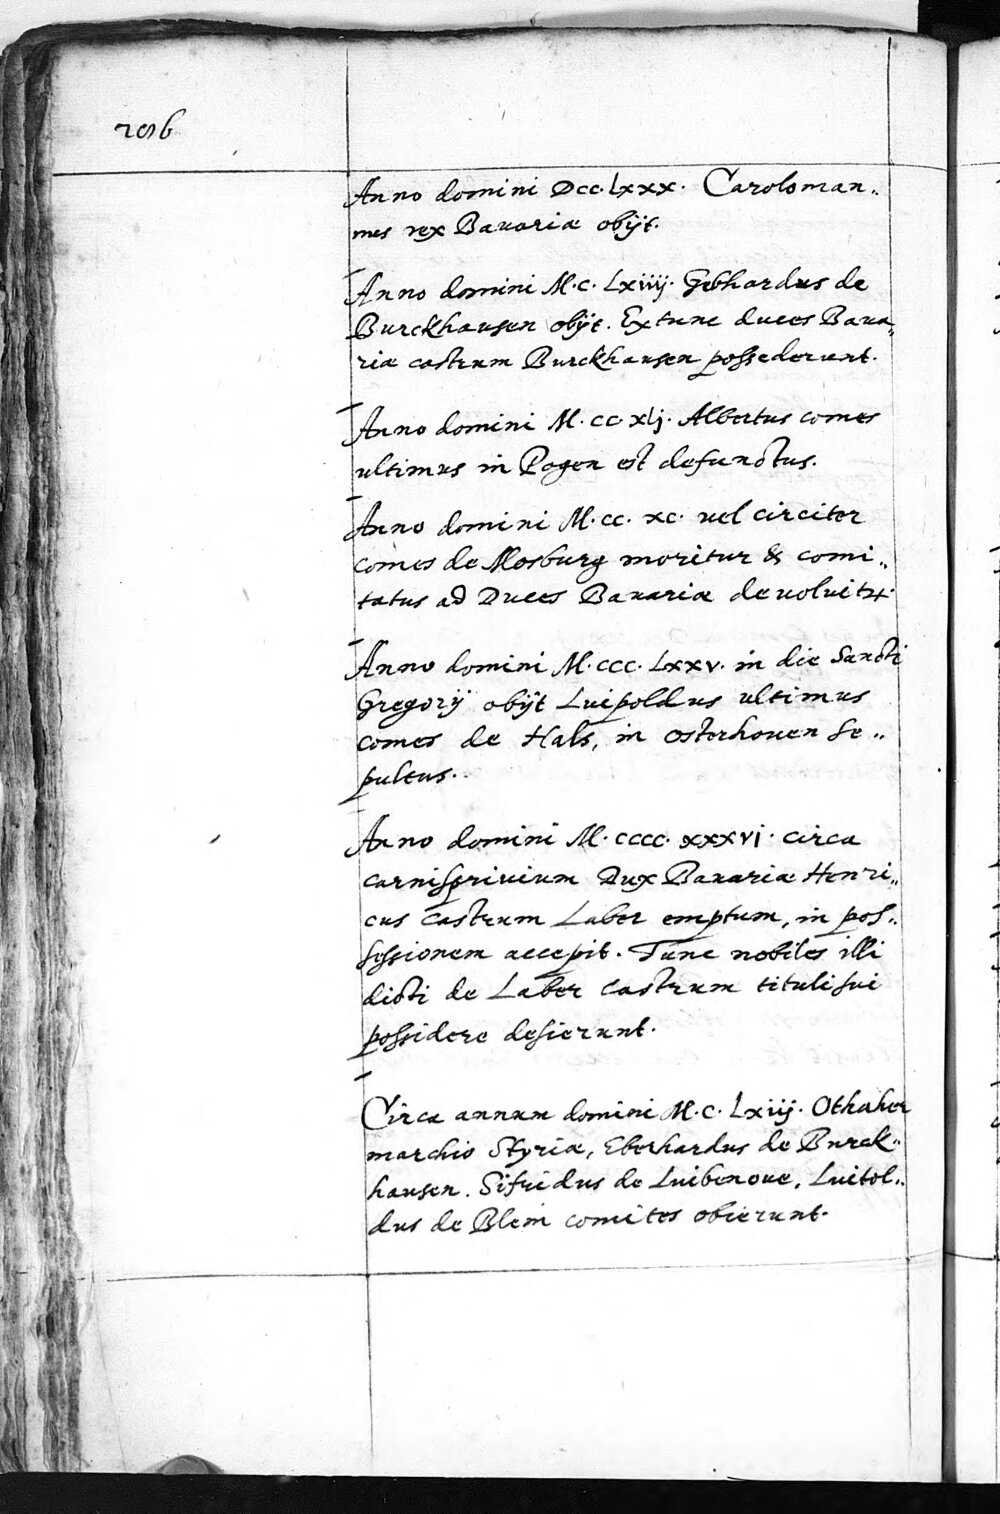 206
Anno domini DCC·Lxxx· Caroloman„
nus rex Bauariæ obijt·
Anno domini M·C·Lxiiij· Gebhardus de
Burckhausen obijt. Ex tunc duces Baua„
riæ castrum Burckhausen possederunt·
Anno domini M·CC·xlj· Albertus comes
ultimus in Pogen est defunctus.
Anno domini M·CC·xc· uel circiter
comes de Mosburg moritur & comi„
tatus ad Duces Bauariæ deuoluitur·
Anno domini M·CCC·Lxxv· in die Sancti
Gregorij obijt Luipoldus ultimus
comes de Hals, in Osterhouen se„
pultus··
Anno domini M·CCCC·xxxvi· circa
carnispriuium Dux Bauariæ Henri„
cus castrum Laber emptum, in pos„
sessionem accepit. Tunc nobiles illi
dicti de Laber castrum tituli sui
possidere desierunt·
Circa annum domini M·C·Lxiij· Othaker
marchio Styriæ, Eberhardus de Burck„
hausen. Sifridus de Luibenoue, Luitol„
dus de Blein comites obierunt·